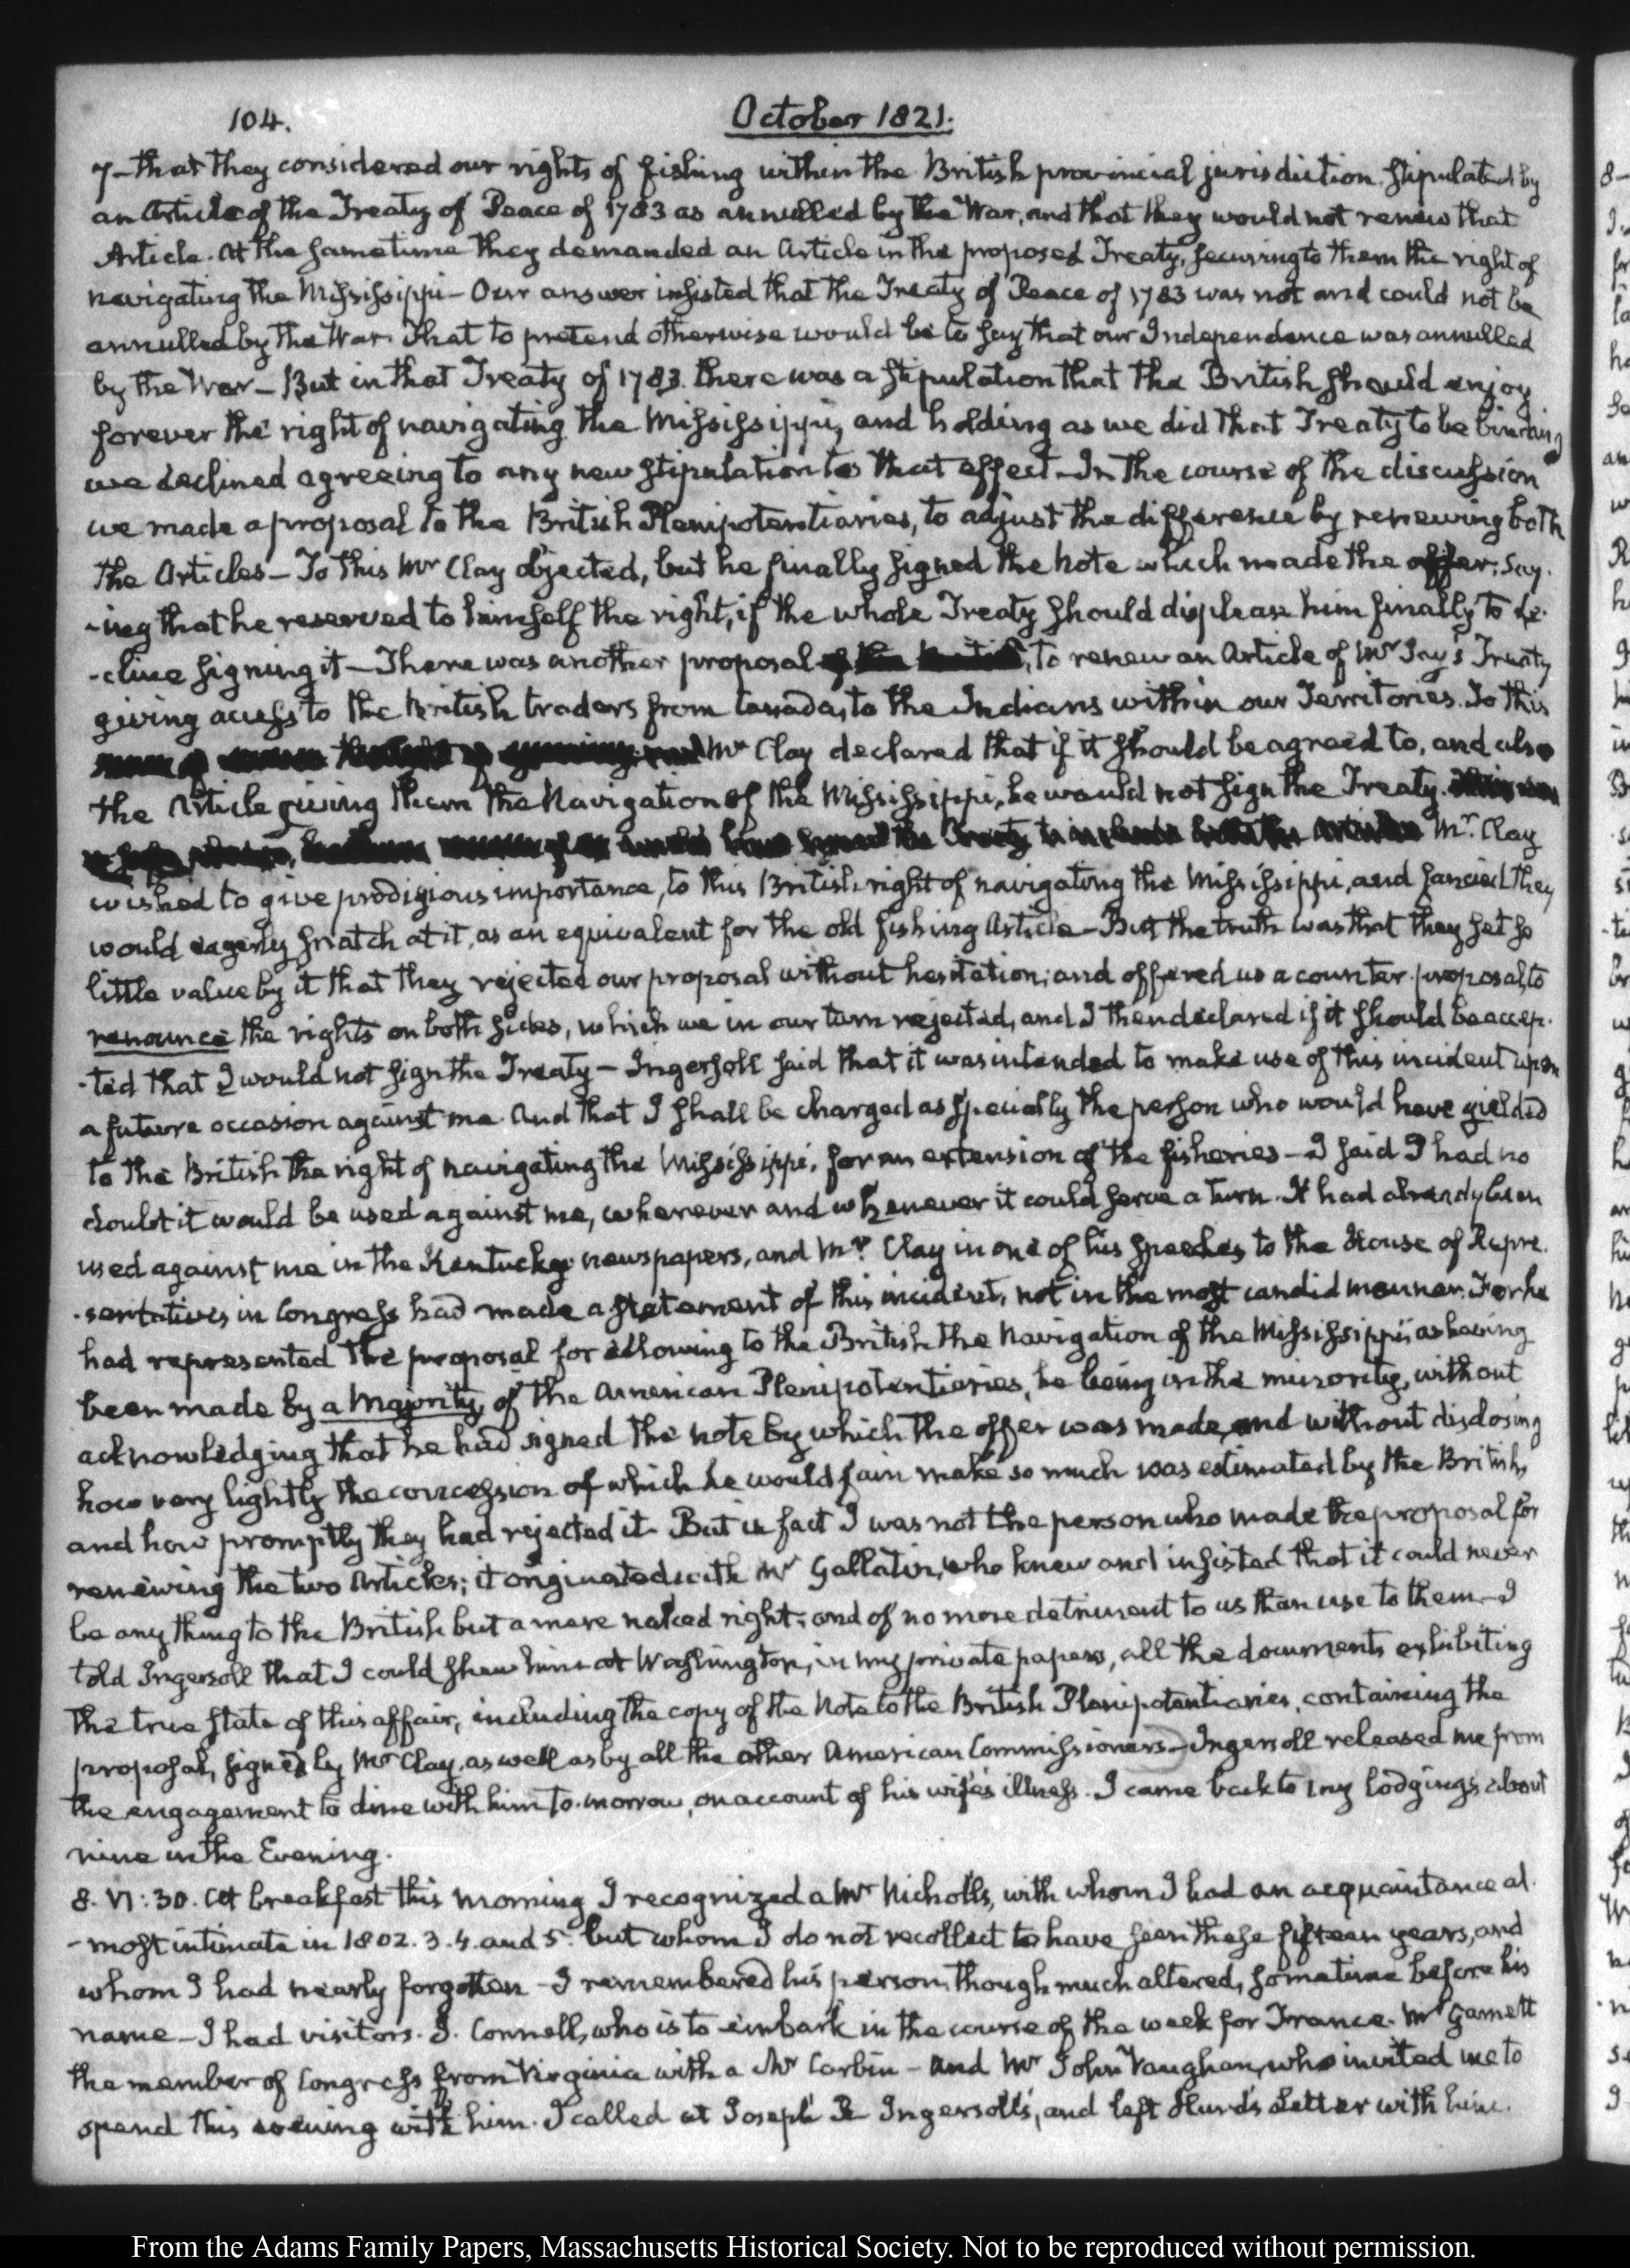 104.
October 1821.
7 - that they considered our rights of fishing within the British provincial jurisdiction stipulated by
an Article of the Treaty of Peace of 1783 as annulled by the War, and that they would not renew that
Article. At the same time they demanded an Article in the proposed Treaty, securing to them the right of
navigating the Mississippi - Our answer insisted that the Treaty of Peace of 1783 was not and could not be
annulled by the War. That to pretend otherwise would be to say that our Independence was annulled
by the War - But in that Treaty of 1783 there was a stipulation that the British should enjoy
forever the right of navigating the Mississippi, and holding as we did that Treaty to be binding
we declined agreeing to any new stipulation to that effect - In the course of the discussion
we made a proposal to the British Plenipotentiaries, to adjust the difference by renewing both
the Articles - To this Mr Clay objected, but he finally signed the Note which made the offer; say-
-ing that he reserved to himself the right, if the whole Treaty should displease him finally to de-
-cline signing it - There was another proposal to renew an Article of Mr Jay's Treaty
giving access to the British traders from Canada, to the Indians within our Territories. To this
Mr Clay declared that if it should be agreed to, and also
the Article giving them the Navigation of the Mississippi, he would not sign the Treaty.
Mr. Clay
wished to give prodigious importance, to this British right of navigating the Mississippi, and fancied they
would eagerly snatch at it, as an equivalent for the old fishing Article - But the truth was that they set so
little value by it that they rejected our proposal without hesitation; and offered us a counter-proposal, to
renounce the rights on both sides, which we in our turn rejected, and I then declared if it should be accep-
-ted that I would not sign the Treaty - Ingersoll said that it was intended to make use of this incident upon
a future occasion against me. And that I shall be charged as specially the person who would have yielded
to the British the right of navigating the Mississippi, for an extension of the fisheries - I said I had no
doubt it would be used against me, wherever and whenever it could serve a turn. It had already been
used against me in the Kentucky newspapers, and Mr. Clay in one of his speeches to the House of Repre-
-sentatives in Congress had made a statement of this incident, not in the most candid manner. For he
had represented the proposal for allowing to the British the Navigation of the Mississippi, as having
been made by a Majority, of the American Plenipotentiaries, he being in the minority, without
acknowledging that he had signed the note by which the offer was made, and without disclosing
how very lightly the concession of which he would fain make so much was estimated by the British,
and how promptly they had rejected it. But in fact I was not the person who made the proposal for
renewing the two Articles; it originated with Mr Gallatin, who knew and insisted that it could never
be any thing to the British but a mere naked right; and of no more detriment to us than use to them - I
told Ingersoll that I could shew him at Washington, in my private papers, all the documents exhibiting
the true state of this affair, including the copy of the Note to the British Plenipotentiaries, containing the
proposal, signed by Mr Clay, as well as by all the other American Commissioners - Ingersoll released me from
the engagement to dine with him to-morrow, on account of his wife's illness. I came back to my lodgings about
nine in the Evening.
8. VI:30. At breakfast this morning I recognized a Mr Nicholls, with whom I had an acquaintance al-
-most intimate in 1802. 3. 4. and 5. but whom I do not recollect to have seen these fifteen years, and
whom I had nearly forgotten - I remembered his person, though much altered, sometime before his
name - I had visitors. J. Connell, who is to embark in the course of the week for France. Mr Garnett
the member of Congress from Virginia with a Mr Corbin - and Mr John Vaughan, who invited me to
spend this evening with him. I called at Joseph R Ingersoll's, and left Hurd's Letter with him.
From the Adams Family Papers, Massachusetts Historical Society. Not to be reproduced without permission.